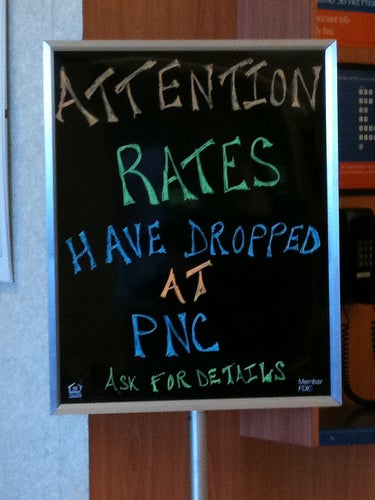 ATTENTION
RATES
HAVE DROPPED
AT
PNC
ASK FOR DETAILS
Member
FDIC